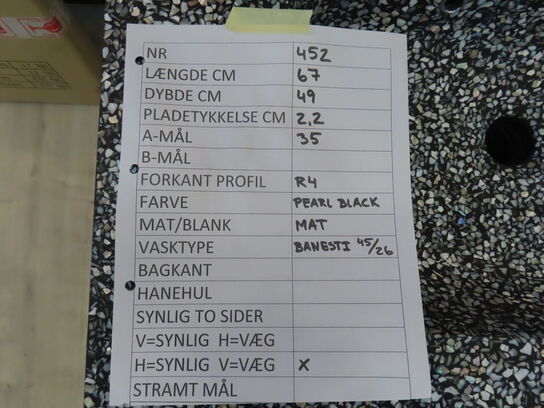 NR 452
LÆNGDE CM 67
DYBDE CM 49
PLADETYKKELSE CM 2,2
A-MÅL 35
B-MÅL
FORKANT PROFIL R4
FARVE PEARL BLACK
MAT/BLANK MAT
VASKTYPE BANESTI 45/26
BAGKANT
HANEHUL
SYNLIG TO SIDER
V=SYNLIG H=VÆG
H=SYNLIG V=VÆG X
STRAMT MÅL